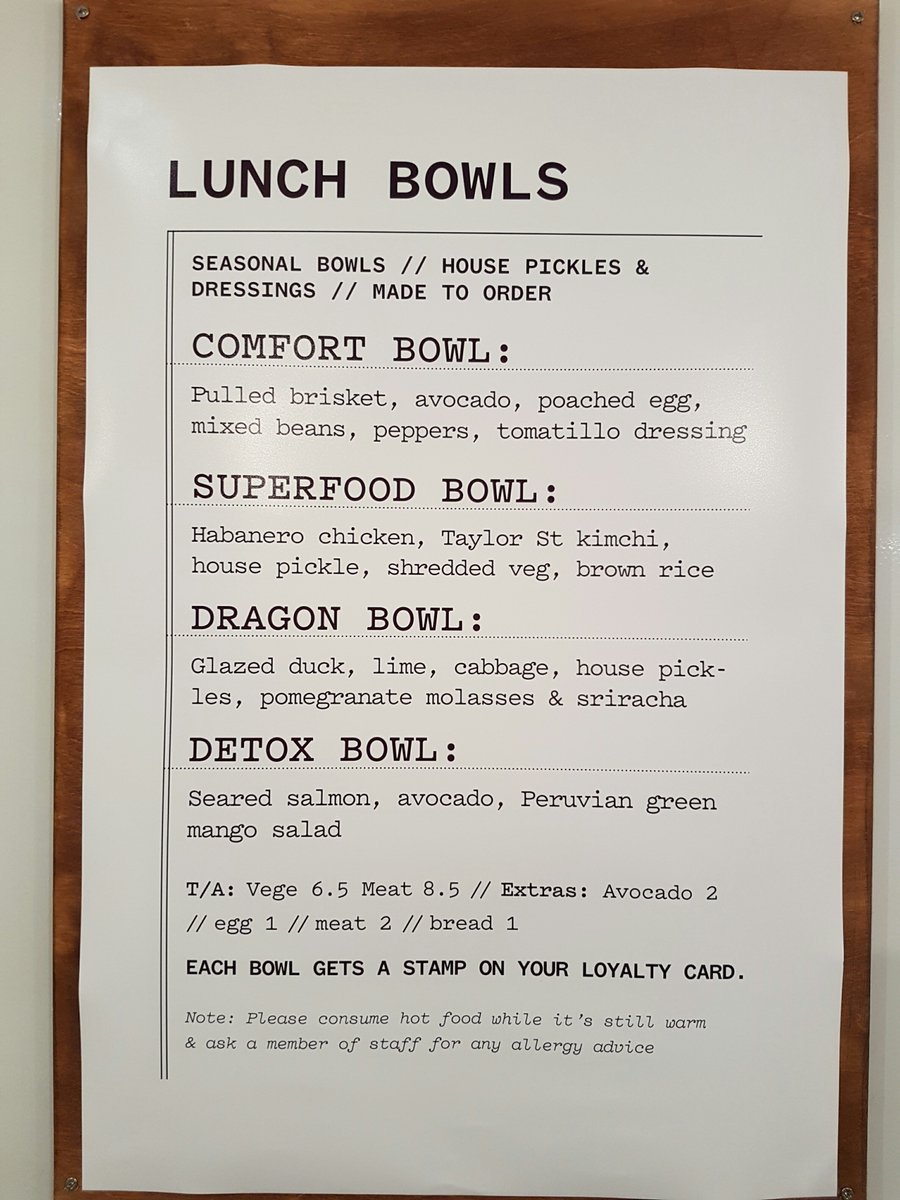 LUNCH BOWLS
SEASONAL BOWLS // HOUSE PICKLES &
DRESSINGS // MADE TO ORDER
COMFORT BOWL:
Pulled brisket, avocado, poached egg,
mixed beans, peppers, tomatillo dressing
SUPERFOOD BOWL:
Habanero chicken, Taylor St kimchi,
house pickle, shredded veg, brown rice
DRAGON BOWL:
Glazed duck, lime, cabbage, house pick-
les, pomegranate molasses & sriracha
DETOX BOWL:
Seared salmon, avocado, Peruvian green
mango salad
T/A: Vege 6.5 Meat 8.5 // Extras: Avocado 2
// egg 1 // meat 2 // bread 1
EACH BOWL GETS A STAMP ON YOUR LOYALTY CARD.
Note: Please consume hot food while it's still warm
& ask a member of staff for any allergy advice